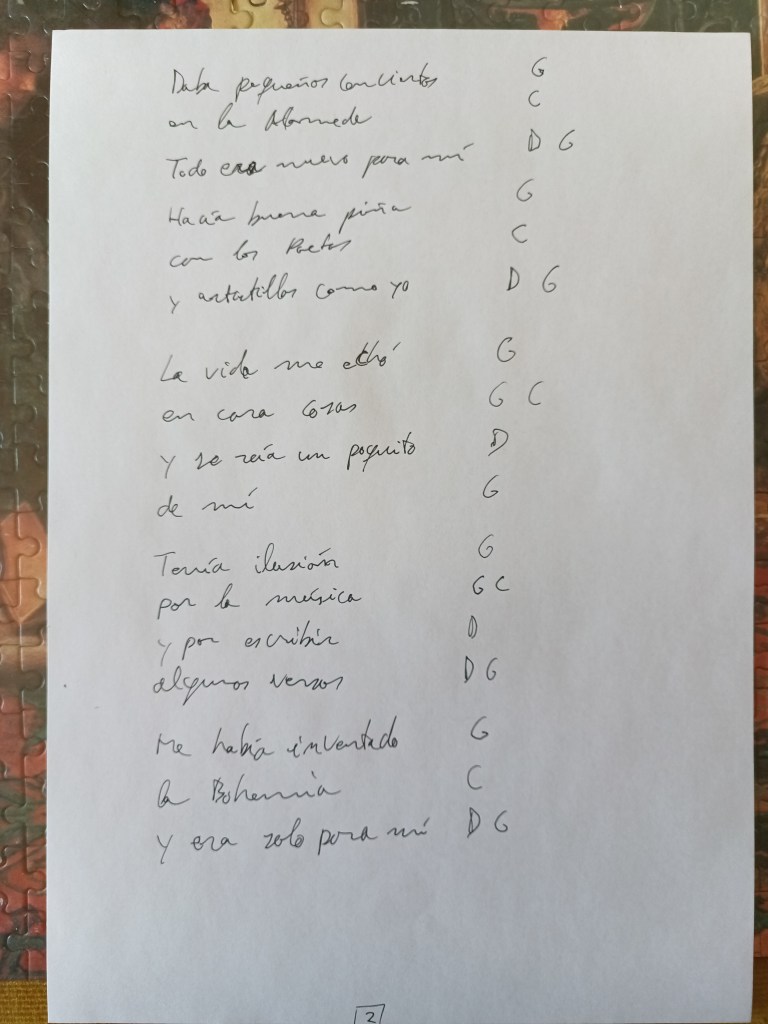 Daba pequeños conciertos G
en la Alameda C
Todo era nuevo para mí D G
Hacía buena piña G
con los Poetas C
y artistillas como yo D G
La vida me echó G
en cara cosas G C
y se reía un poquito D
de mí G
Tenía ilusión G
por la música G C
y por escribir D
algunos versos D G
Me había inventado G
la Bohemia C
y era solo para mí D G
2